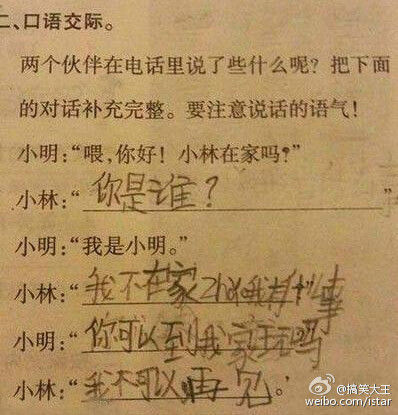 二、口语交际。
两个伙伴在电话里说了些什么呢？把下面
的对话补充完整。要注意说话的语气！
小明：“喂，你好！小林在家吗？”
小林：“你是谁？”
小明：“我是小明。”
小林：“我不在家 找我有什事
小明：“你可以到我家玩吗
小林：“我不可以 再见。”
@搞笑大王
weibo.com/istar